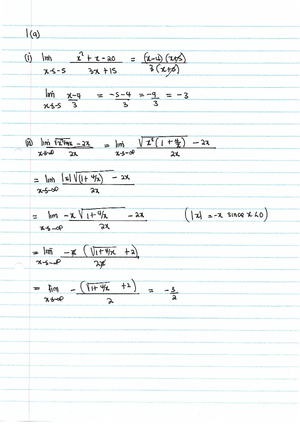 1(a)
(i) lim x→-5 (x² + x - 20)/(3x + 15) = (x-4)(x+5)/3(x+5)
lim x→-5 (x-4)/3 = (-5-4)/3 = -9/3 = -3
(ii) lim x→-∞ (√(x²+4x) - 2x)/2x = lim x→-∞ (√(x²(1 + 4/x)) - 2x)/2x
= lim x→-∞ (|x|√(1+4/x) - 2x)/2x
= lim x→-∞ (-x√(1+4/x) - 2x)/2x (|x| = -x since x<0)
= lim x→-∞ -x(√(1+4/x) + 2)/2x
= lim x→-∞ -(√(1+4/x) + 2)/2 = -3/2